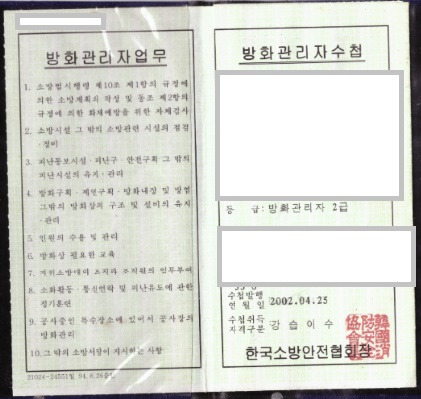 방화관리자업무
1. 소방법시행령 제10조 제1항의 규정에
의한 소방계획의 작성 및 동조 제2항의
규정에 의한 화재예방을 위한 자체검사
2. 소방시설 그 밖의 소방관련 시설의 점검
·정비
3. 피난통보시설·피난구·안전구획 그 밖의
피난시설의 유지·관리
4. 방화구획·제연구획·방화내장 및 방염
그밖의 방화상의 구조 및 설비의 유지
·관리
5. 인원의 수용 및 관리
6. 방화상 필요한 교육
7. 자위소방대의 조직과 조직원의 임무부여
8. 소화활동·통신연락 및 피난유도에 관한
정기훈련
9. 공사중인 특수장소에 있어서 공사장의
방화관리
10. 그 밖의 소방서장이 지시하는 사항
방화관리자수첩
등 급: 방화관리자 2급
수첩발행
연 월 일 2002.04.25
수첩취득
자격구분 강습이수
한국소방안전협회장
韓國消
防安全
協會